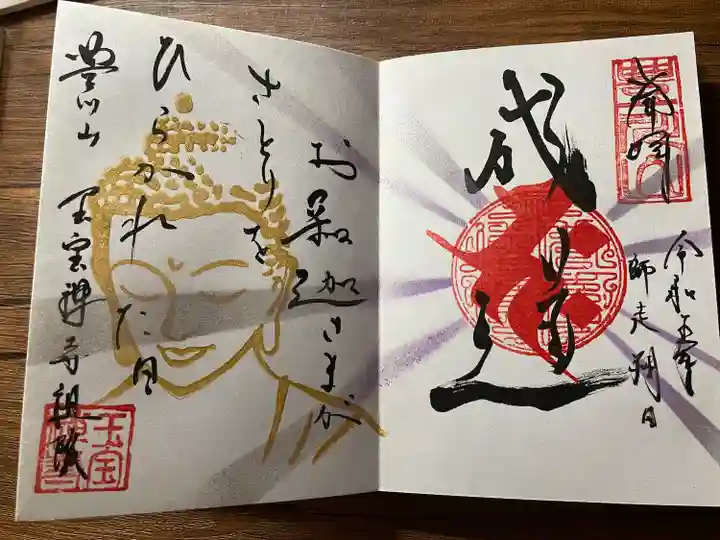 奉拝
令和五年
師走朔日
成道会
お釈迦さまが
さとりを
ひらかれた日
玉宝禅寺
玉宝